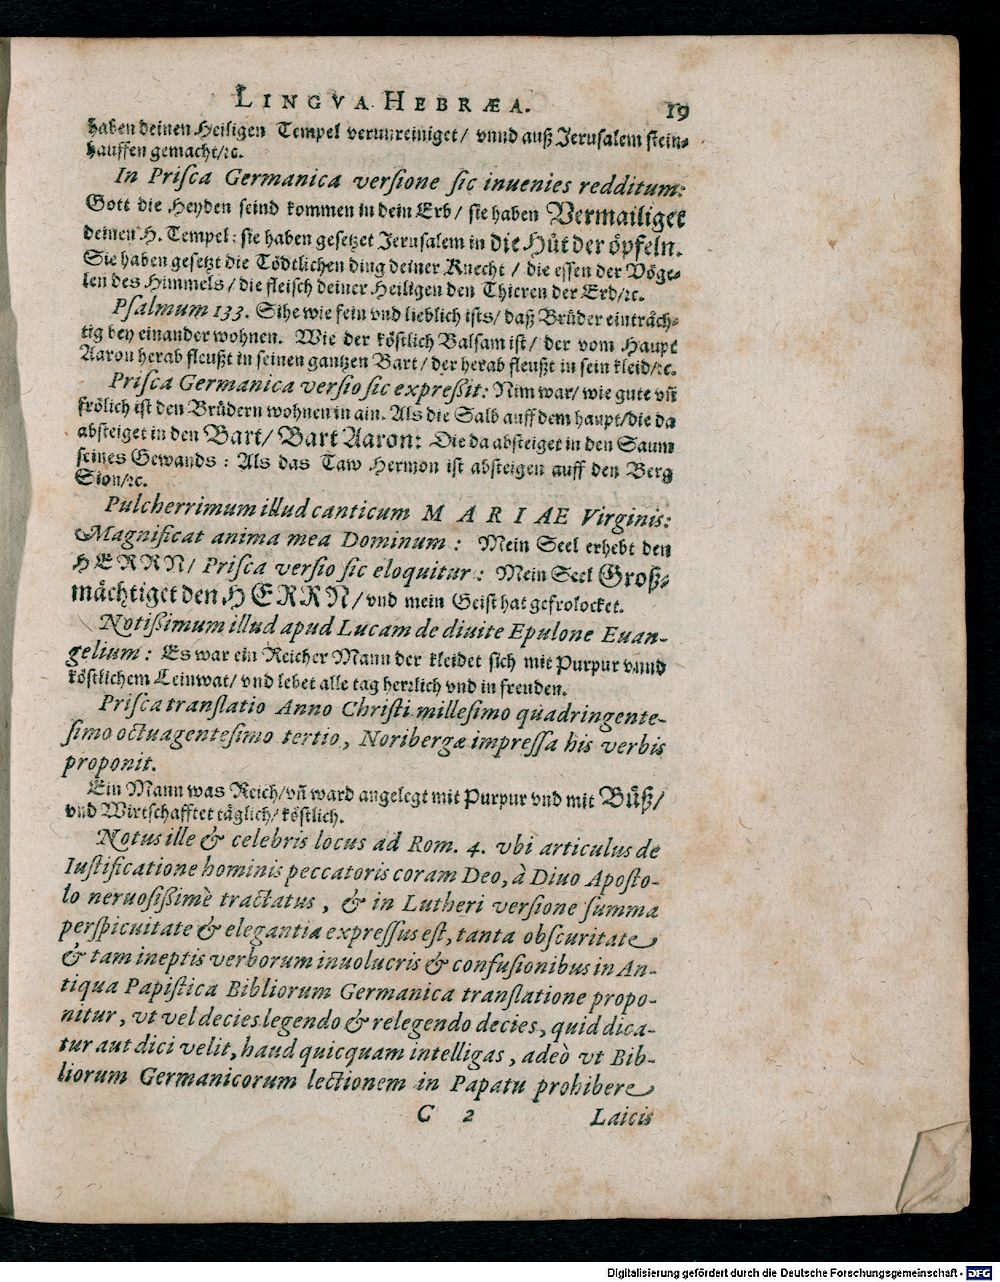 LINGVA HEBRÆA. 19
haben deinen Heiligen Tempel verunreiniget/ vnnd auß Jerusalem stein-
hauffen gemacht/ꝛc.
In Priſca Germanica verſione ſic inuenies redditum:
Gott die Heyden seind kommen in dein Erb/ sie haben Vermailiget
deinen H. Tempel: sie haben gesetzet Jerusalem in die Hůt der öpfeln.
Sie haben gesetzt die Tödtlichen ding deiner Knecht / die essen der Vöge-
len des Himmels/ die fleisch deiner Heiligen den Thieren der Erd/ꝛc.
Pſalmum 133. Sihe wie fein vnd lieblich ists/ daß Brüder einträch-
tig bey einander wohnen. Wie der köstlich Balsam ist/ der vom Haupt
Aaron herab fleußt in seinen gantzen Bart/ der herab fleußt in sein kleid/ꝛc.
Priſca Germanica verſio ſic expreßit: Nim war/ wie gute vñ
frölich ist den Brüdern wohnen in ain. Als die Salb auff dem haupt/die da
absteiget in den Bart/ Bart Aaron: Die da absteiget in den Saum
seines Gewands: Als das Taw Hermon ist absteigen auff den Berg
Sion/ꝛc.
Pulcherrimum illud canticum MARIAE Virginis:
Magnificat anima mea Dominum: Mein Seel erhebt den
HERRN/ Priſca verſio ſic eloquitur: Mein Seel Groß-
mächtiget den HERRN/ vnd mein Geist hat gefrolocket.
Notißimum illud apud Lucam de diuite Epulone Euan-
gelium: Es war ein Reicher Mann der kleidet sich mit Purpur vnnd
köstlichem Leinwat/ vnd lebet alle tag herꝛlich vnd in freuden.
Priſca tranſlatio Anno Chriſti milleſimo quadringente-
ſimo octuagenteſimo tertio, Noribergæ impreſſa his verbis
proponit.
Ein Mann was Reich/vñ ward angelegt mit Purpur vnd mit Büß/
vnd Wirtschafftet täglich/ köstlich.
Notus ille & celebris locus ad Rom. 4. vbi articulus de
Iuſtificatione hominis peccatoris coram Deo, à Diuo Apoſto-
lo neruoſißimè tractatus, & in Lutheri verſione ſumma
perſpicuitate & elegantia expreſſus eſt, tanta obſcuritate
& tam ineptis verborum inuolucris & confuſionibus in An-
tiqua Papiſtica Bibliorum Germanica tranſlatione propo-
nitur, vt vel decies legendo & relegendo decies, quid dica-
tur aut dici velit, haud quicquam intelligas, adeò vt Bib-
liorum Germanicorum lectionem in Papatu prohibere
C 2 Laicis
Digitalisierung gefördert durch die Deutsche Forschungsgemeinschaft - DFG